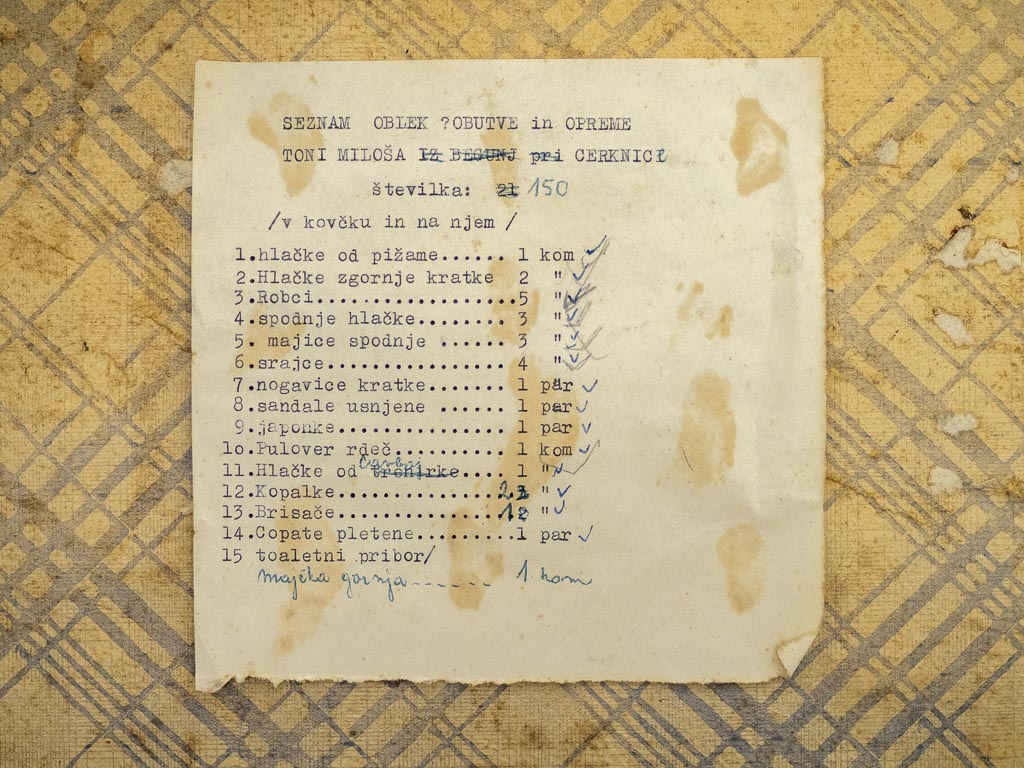 SEZNAM OBLEK ?OBUTVE in OPREME
TONI MILOŠA IZ BEGUNJ pri CERKNICI
številka: 21 150
/v kovčku in na njem /
1.hlačke od pižame...... 1 kom
2.Hlačke zgornje kratke 2 "
3.Robci..................5 "
4.spodnje hlačke........ 3 "
5. majice spodnje ...... 3 "
6.srajce................ 4 "
7.nogavice kratke....... 1 par
8.sandale usnjene ...... 1 par
9.japonke............... 1 par
1o.Pulover rdeč.......... 1 kom
11.Hlačke od trenirke.... 1 "
12.Kopalke............... 2 "
13.Brisače............... 12 "
14.Copate pletene.........1 par
15 toaletni pribor/
majčka gornja------ 1 kom